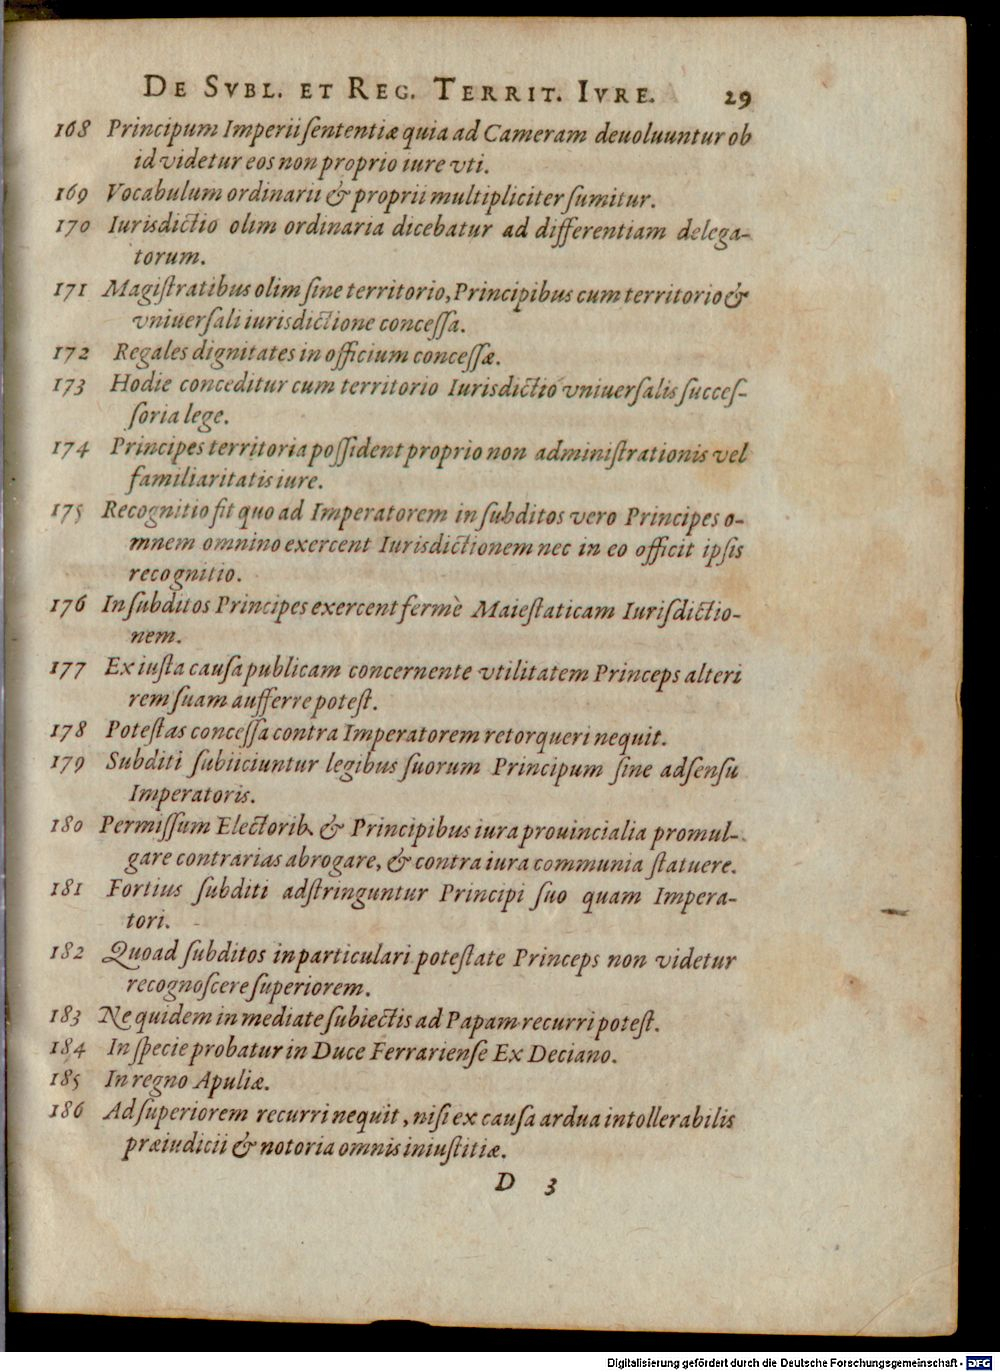 De Svbl. et Reg. Territ. Ivre. 29
168 Principum Imperii ſententiæ quia ad Cameram deuoluuntur ob
id videtur eos non proprio iure vti.
169 Vocabulum ordinarii & proprii multipliciter ſumitur.
170 Iurisdictio olim ordinaria dicebatur ad differentiam delega-
torum.
171 Magiſtratibus olim ſine territorio, Principibus cum territorio &
vniuerſali iurisdictione conceſſa.
172 Regales dignitates in officium conceſſæ.
173 Hodie conceditur cum territorio Iurisdictio vniuerſalis ſucceſ-
ſoria lege.
174 Principes territoria poſſident proprio non adminiſtrationis vel
familiaritatis iure.
175 Recognitio fit quo ad Imperatorem in ſubditos vero Principes o-
mnem omnino exercent Iurisdictionem nec in eo officit ipſis
recognitio.
176 In ſubditos Principes exercent fermè Maieſtaticam Iuriſdictio-
nem.
177 Ex iuſta cauſa publicam concernente vtilitatem Princeps alteri
rem ſuam aufferre poteſt.
178 Poteſtas conceſſa contra Imperatorem retorqueri nequit.
179 Subditi ſubiiciuntur legibus ſuorum Principum ſine adſenſu
Imperatoris.
180 Permiſſum Electorib. & Principibus iura prouincialia promul-
gare contrarias abrogare, & contra iura communia ſtatuere.
181 Fortius ſubditi adſtringuntur Principi ſuo quam Impera-
tori.
182 Quoad ſubditos in particulari poteſtate Princeps non videtur
recognoſcere ſuperiorem.
183 Ne quidem in mediate ſubiectis ad Papam recurri poteſt.
184 In ſpecie probatur in Duce Ferrarienſe Ex Deciano.
185 In regno Apuliæ.
186 Ad ſuperiorem recurri nequit, niſi ex cauſa ardua intollerabilis
præiudicii & notoria omnis iniuſtitiæ.
D 3
Digitalisierung gefördert durch die Deutsche Forschungsgemeinschaft - DFG